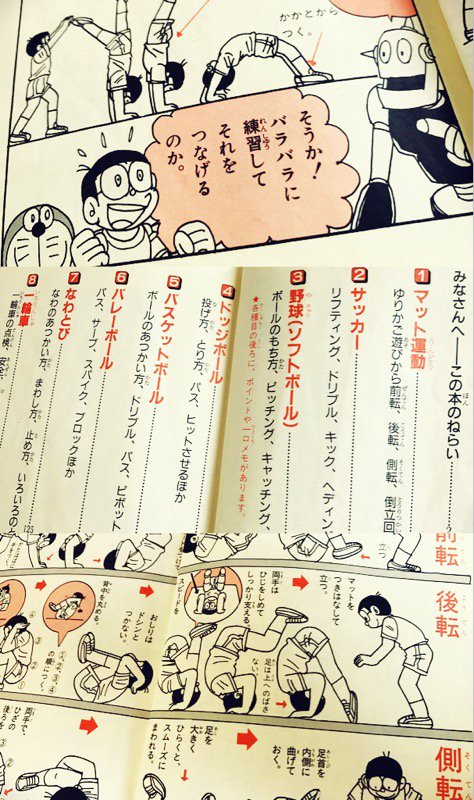 かかとから
つく。
そうか！
バラバラに
練習して
それを
つなげる
のか。
みなさんへ――この本のねらい
1 マット運動
ゆりかご遊びから前転、後転、側転、倒立回
2 サッカー
リフティング、ドリブル、キック、ヘディン
3 野球(ソフトボール)
ボールのもち方、ピッチング、キャッチング、
★各種目の後ろに、ポイントや一口メモがあります。
4 ドッジボール
投げ方、とり方、パス、ヒットさせるほか
5 バスケットボール
ボールのあつかい方、ドリブル、パス、ピボット
6 バレーボール
パス、サーブ、スパイク、ブロックほか
7 なわとび
なわのあつかい方、まわし方、止め方、いろいろの
8 一輪車
一輪車の点検、安全
125
前転
立つ
後転
マットを
つきはなして
立つ。
両手は
ひじをしめて
しっかり支える。
足は上へのばさ
ない。
スピードを
おしりは
ドシンと
つかない。
背中を丸める。
①、②、③、④
の順につく。
側転
足首を
内側に
曲げて
おく。
足を
大きく
ひらくと、
スムーズに
まわれる。
両手で、
ひざの
後ろを